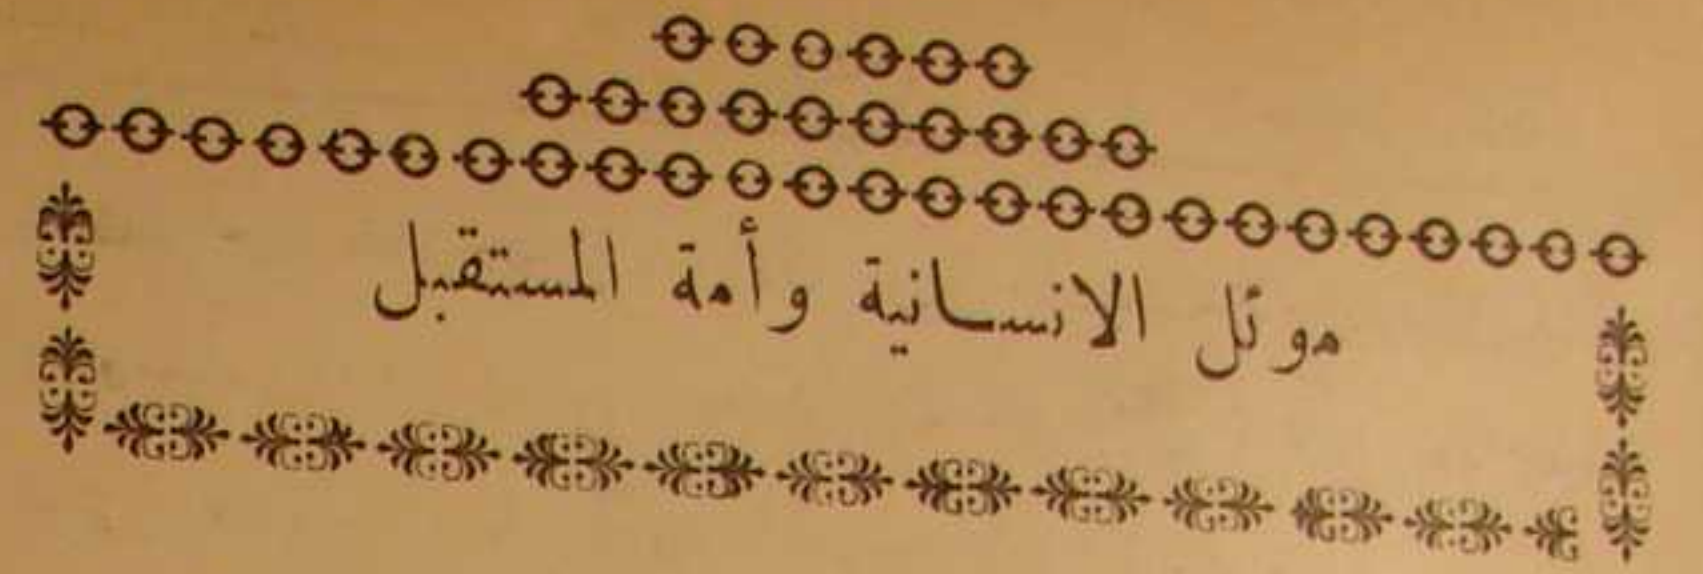 موئل الانسانية وأمة المستقبل